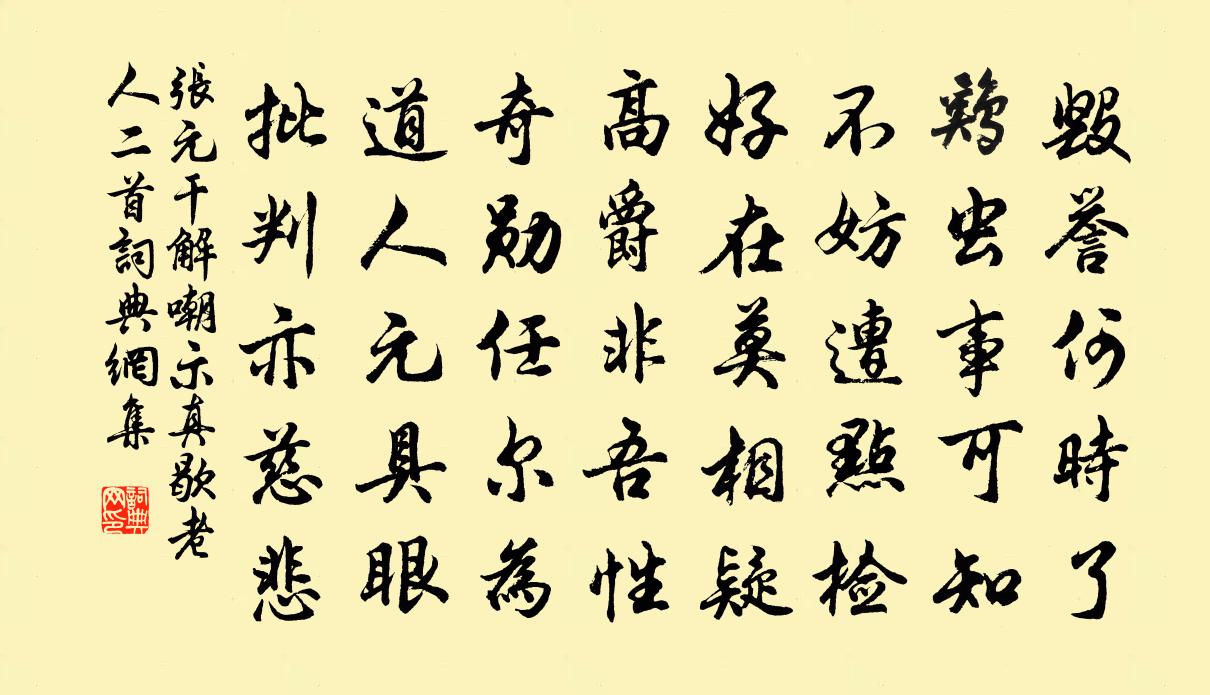 毀譽何時了
鷄虫事可知
不妨遭點检
好在莫相疑
高爵非吾性
奇勋任尔為
道人元具眼
批判亦慈悲
張元干解嘲示真歇老
人二首詞典網集
詞典網印